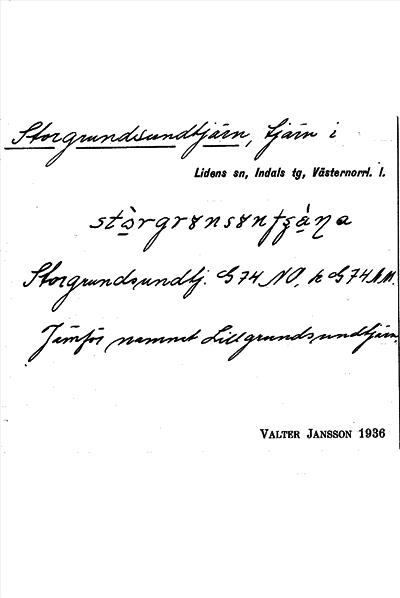 Storgrundsundtjärn, tjärn i
Lidens sn, Indals tg, Västernorrl. l.
Storgrundsundtj. G 74 NO, k G 74 NN.
Jämför namnet Lillgrundsundtjärn.
VALTER JANSSON 1936